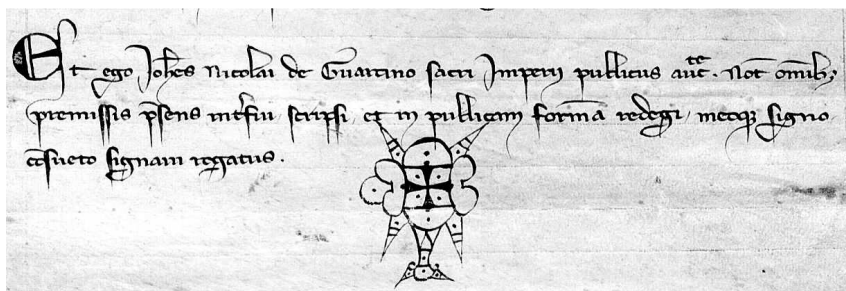 Et ego Joh̅es Nicolai de Guarcino sacri Imperii publicus auc̅te. Not̅ om̅ib;
premissis p̅sens int̅fui scripsi et in publicam form̅a redegi, meoq; signo
co̅sueto signavi rogatus.